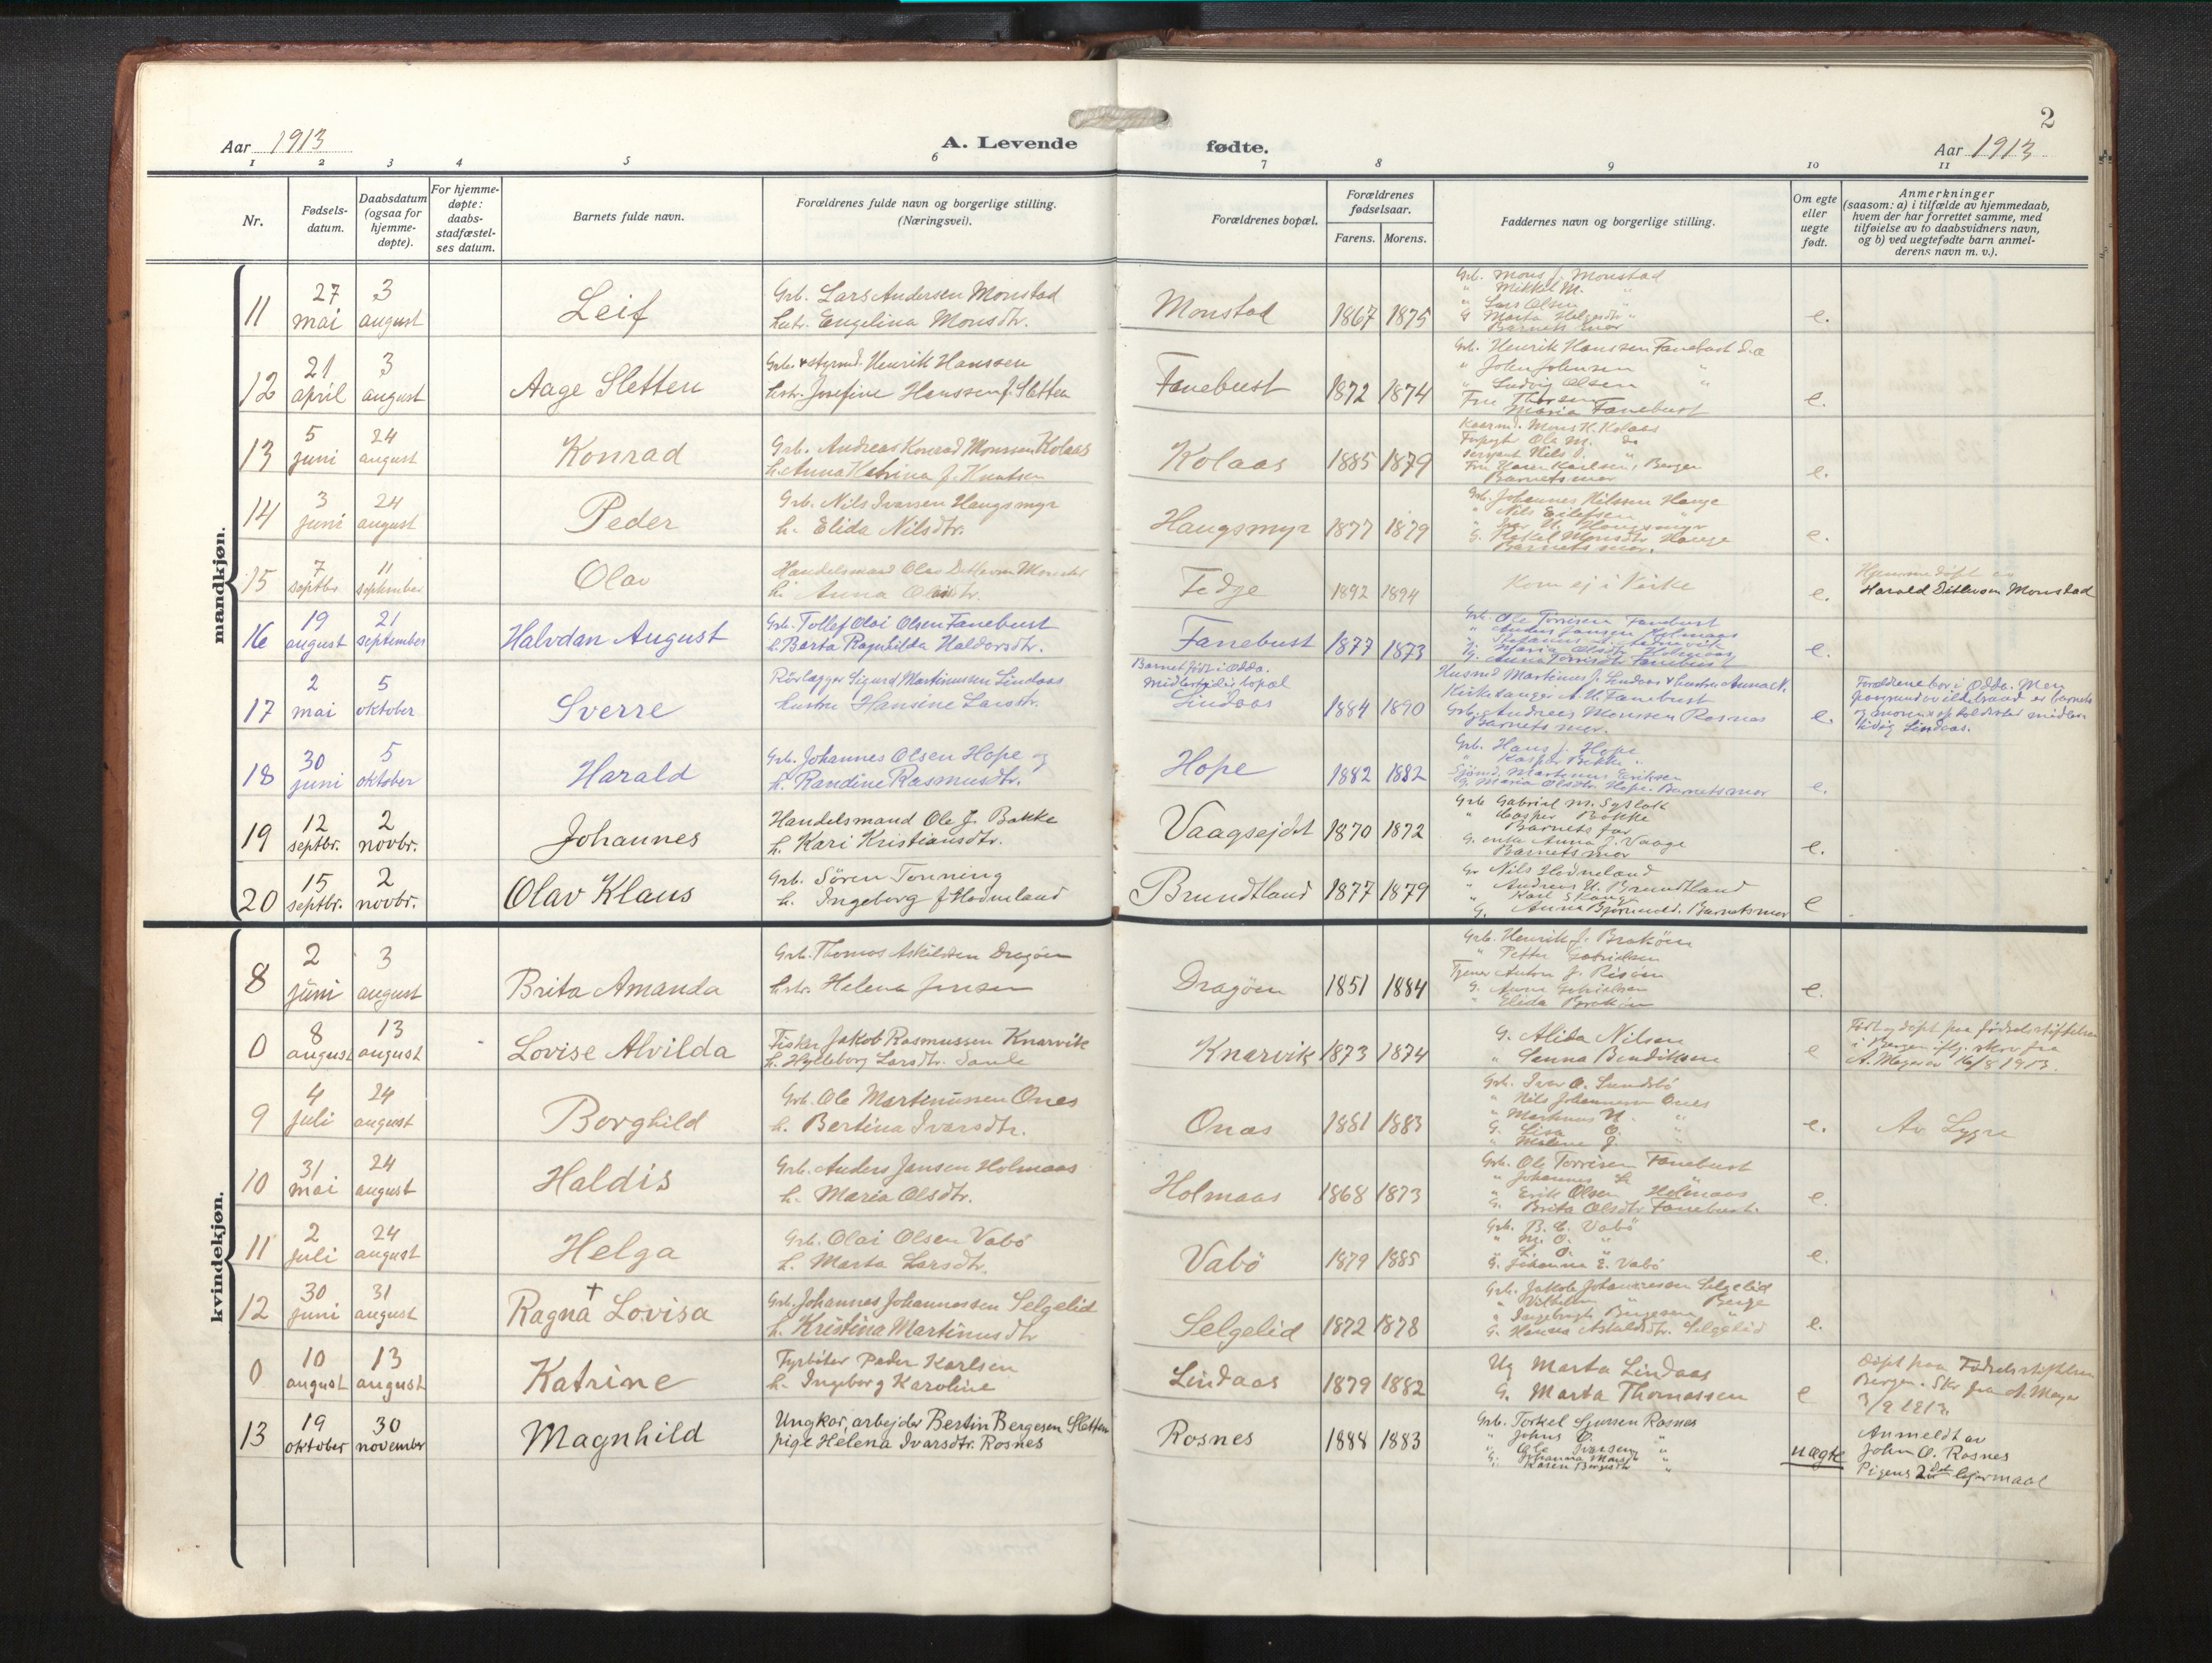 2
Aar 1913
A. Levende fødte.
Aar 1913
1 2 3 4 5 6 7 8 9 10 11
Nr.
Fødsels-
datum.
Daabsdatum
(ogsaa for
hjemme-
døpte).
For hjemme-
døpte:
daabs-
stadfæstel-
ses datum.
Barnets fulde navn.
Forældrenes fulde navn og borgerlige stilling.
(Næringsvei).
Forældrenes bopæl.
Forældrenes
fødselsaar.
Farens. Morens.
Faddernes navn og borgerlige stilling.
Om egte
eller
uegte
født.
Anmerkninger
(saasom: a) i tilfælde av hjemmedaab,
hvem der har forrettet samme, med
tilføielse av to daabsvidners navn,
og b) ved uegtefødte barn anmel-
derens navn m. v.).
mandkjøn.
11
27 mai
3 august
Leif
Grb. Lars Andersen Monstad
hstr. Engelina Monsdtr.
Monstad
1867 1875
Grb. Mons J. Monstad
" Mikkel M. "
" Lars Olsen "
G Marta Helgesdtr "
Barnets mor
e.
12
21 april
3 august
Aage Sletten
Grb. & styrmd. Henrik Hanssen
hstr. Josefine Hanssen f. Sletten
Fanebust
1872 1874
Grb. Henrik Hanssen Fanebust d.æ
" John Johnsen "
" Ludvig Olsen "
Fru Thorsen
Maria Fanebust
e.
13
5 juni
24 august
Konrad
Grb. Andreas Konrad Monssen Kolaas
h. Anna Katrina f. Knutsen
Kolaas
1885 1879
Kaarmd. Mons K. Kolaas
Ole M. do
Nils
Fru Karen Karlsen, Bergen
Barnets mor
e.
14
3 juni
24 august
Peder
Grb. Nils Ivarsen Haugsmyr
h. Elida Nilsdtr.
Haugsmyr
1877 1879
Grb. Johannes Nilssen Hauge
" Nils Eilefsen "
" Iver N. Haugsmyr
G. Monsdtr Hauge
Barnets mor.
e.
15
7 septbr
11 september
Olav
Handelsmand Olav Ditlevsen Monstad
h. Anna Olaisdtr.
Fedje
1892 1894
Kom ej i Kirke
e.
Hjemmedøpt av
Harald Ditlevsen Monstad
16
19 august
21 september
Halvdan August
Grb. Tollef Olai Olsen Fanebust
h. Berta Ragnhilda Haldorsdtr.
Fanebust
1877 1873
Grb. Ole Torrisen Fanebust
" Anders Jansen Holmaas
Pg. Maria Olsdtr Holmaas
G. Anna Torrisdtr Fanebust
e.
17
2 mai
5 oktober
Sverre
Rörlægger Sigurd Martinussen Lindaas
hustru Hansine Larsdtr.
Barnet født i Odda.
Midlertidig bopæl
Lindaas
1884 1890
Husmd Martinus J. Lindaas & hustru Anna N.
Kirkesanger A. H. Fanebust
Grb. Andreas Monssen Rosnes
Barnets mor.
e.
Forældrene bor i Odda. Men
paa grund av ildebrand er barnets
og morens opholdssted midler-
tidig Lindaas.
18
30 juni
5 oktober
Harald
Grb. Johannes Olsen Hope og
h. Randine Rasmusdtr.
Hope
1882 1882
Grb. Hans J. Hope
" Kasper Bakke "
Sjømd. Martinus Eriksen
G. Maria Olsdtr. Hope. Barnets mor
e.
19
12 septbr.
2 novbr.
Johannes
Handelsmand Ole J. Bakke
h. Kari Kristiansdtr.
Vaagsejdet
1870 1872
Grb Gabriel M. Syslak
" Kasper Bakke
Barnets far
G. enke Anna J. Vaage
Barnets mor
e.
20
15 septbr.
2 novbr.
Olav Klaus
Grb. Sören Tonning
h. Ingeborg f Hodneland
Brundtland
1877 1879
Gr Nils Hodneland
" Andreas N. Brundtland
" Karl
G. Anna Barnets mor
e
kvindekjøn.
8
2 juni
3 august
Brita Amanda
Grb. Thomas Askildsen Dragøen
hstr. Helena Jensen
Dragøen
1851 1884
Grb. Henrik J. Brakøen
" Petter Gabrielsen
Tjener Anton J. Risøen
G. Anna Gabrielsen
" Elida Brakøen
e.
0
8 august
13 august
Lovise Alvilda
Fisker Jakob Rasmussen Knarvik
h. Hylleborg Larsdtr. Samle
Knarvik
1873 1874
G. Alida Nilsen
" Sanna Bendiksen
e
Født og døpt paa fødselsstiftelsen
i Bergen iflg. skriv. fra
A. Meyer av 16/8 1913.
9
4 juli
24 august
Borghild
Grb. Ole Martinussen Ones
h. Bertina Ivarsdtr.
Onas
1881 1883
Grb. Iver O. Sundsbö
" Nils Johannesen Ones
" Markus N. "
G. Lisa O. "
" Malene J. "
e.
Av Lygre
10
31 mai
24 august
Haldis
Grb. Anders Jansen Holmaas
h. Maria Olsdtr.
Holmaas
1868 1873
Grb. Ole Torrisen Fanebust
" Johannes "
" Erik Olsen Holmaas
G. Brita Olsdtr Fanebust.
e.
11
2 juli
24 august
Helga
Grb. Olai Olsen Vabö
h. Marta Larsdtr.
Vabö
1879 1885
Grb. B. E. Vabö
" M. O. "
" L. O. "
G. Johanna E. Vabö
e.
12
30 juni
31 august
†
Ragna Lovisa
Grb. Johannes Johannessen Selgelid
h. Kristina Martinusdtr
Selgelid
1872 1878
Grb. Jakob Johannessen Selgelid
" Vilhelm " Berge
" Ingebrigt Bergesen "
G. Hansa Askildsdtr. Selgelid
e.
0
10 august
13 august
Katrine
Fyrböter Peder Karlsen
h. Ingeborg Karoline
Lindaas
1879 1882
Ug Marta Lindaas
G. Marta Thomassen
e
Døpt paa Fødselsstiftelsen
Bergen. Skr fra A. Meyer
3/9 1913
13
19 oktober
30 november
Magnhild
Ungkar, arbejder Bertin Bergesen Sletten
pige Helena Ivarsdtr. Rosnes
Rosnes
1888 1883
Grb. Torkel Sjursen Rosnes
" Johns O. "
" Ole Ivarsen "
G. Johanna Monsdtr "
Karen Bergesdtr "
uægte
Anmeldt av
John O. Rosnes
Pigens 2det lejermaal